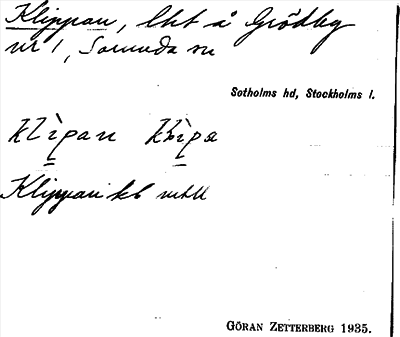 Klippan, lht å Grödby
nr 1, Sorunda sn
Sotholms hd, Stockholms l.
klìpan
Klippan kb
GÖRAN ZETTERBERG 1935.